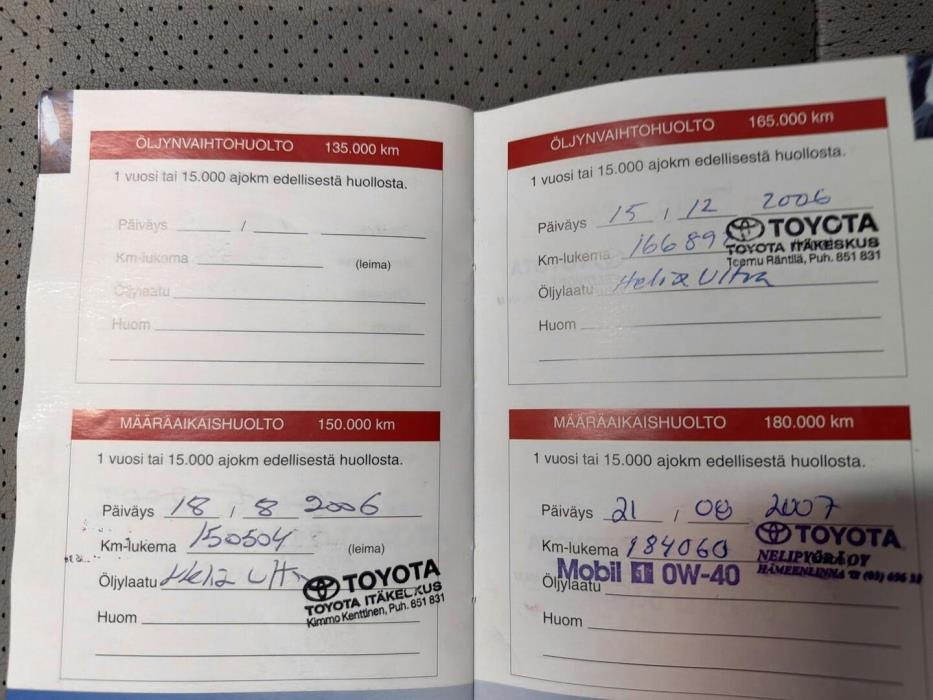 ÖLJYNVAIHTOHUOLTO 135.000 km
1 vuosi tai 15.000 ajokm edellisestä huollosta.
Päiväys /
Km-lukema (leima)
Öljylaatu
Huom
MÄÄRÄAIKAISHUOLTO 150.000 km
1 vuosi tai 15.000 ajokm edellisestä huollosta.
Päiväys 18 / 8 2006
Km-lukema 150504 (leima)
Öljylaatu Helix Ultra
TOYOTA
TOYOTA ITÄKESKUS
Kimmo Kenttinen, Puh. 851 831
Huom
ÖLJYNVAIHTOHUOLTO 165.000 km
1 vuosi tai 15.000 ajokm edellisestä huollosta.
Päiväys 15 / 12 2006
TOYOTA
Km-lukema 16689
TOYOTA ITÄKESKUS
Teemu Räntilä, Puh. 851 831
Öljylaatu Helix Ultra
Huom
MÄÄRÄAIKAISHUOLTO 180.000 km
1 vuosi tai 15.000 ajokm edellisestä huollosta.
Päiväys 21 / 08 2007
TOYOTA
Km-lukema 184060
NELIPYÖRÄ OY
HÄMEENLINNA ☎ (03)
Mobil 1 0W-40
Öljylaatu
Huom